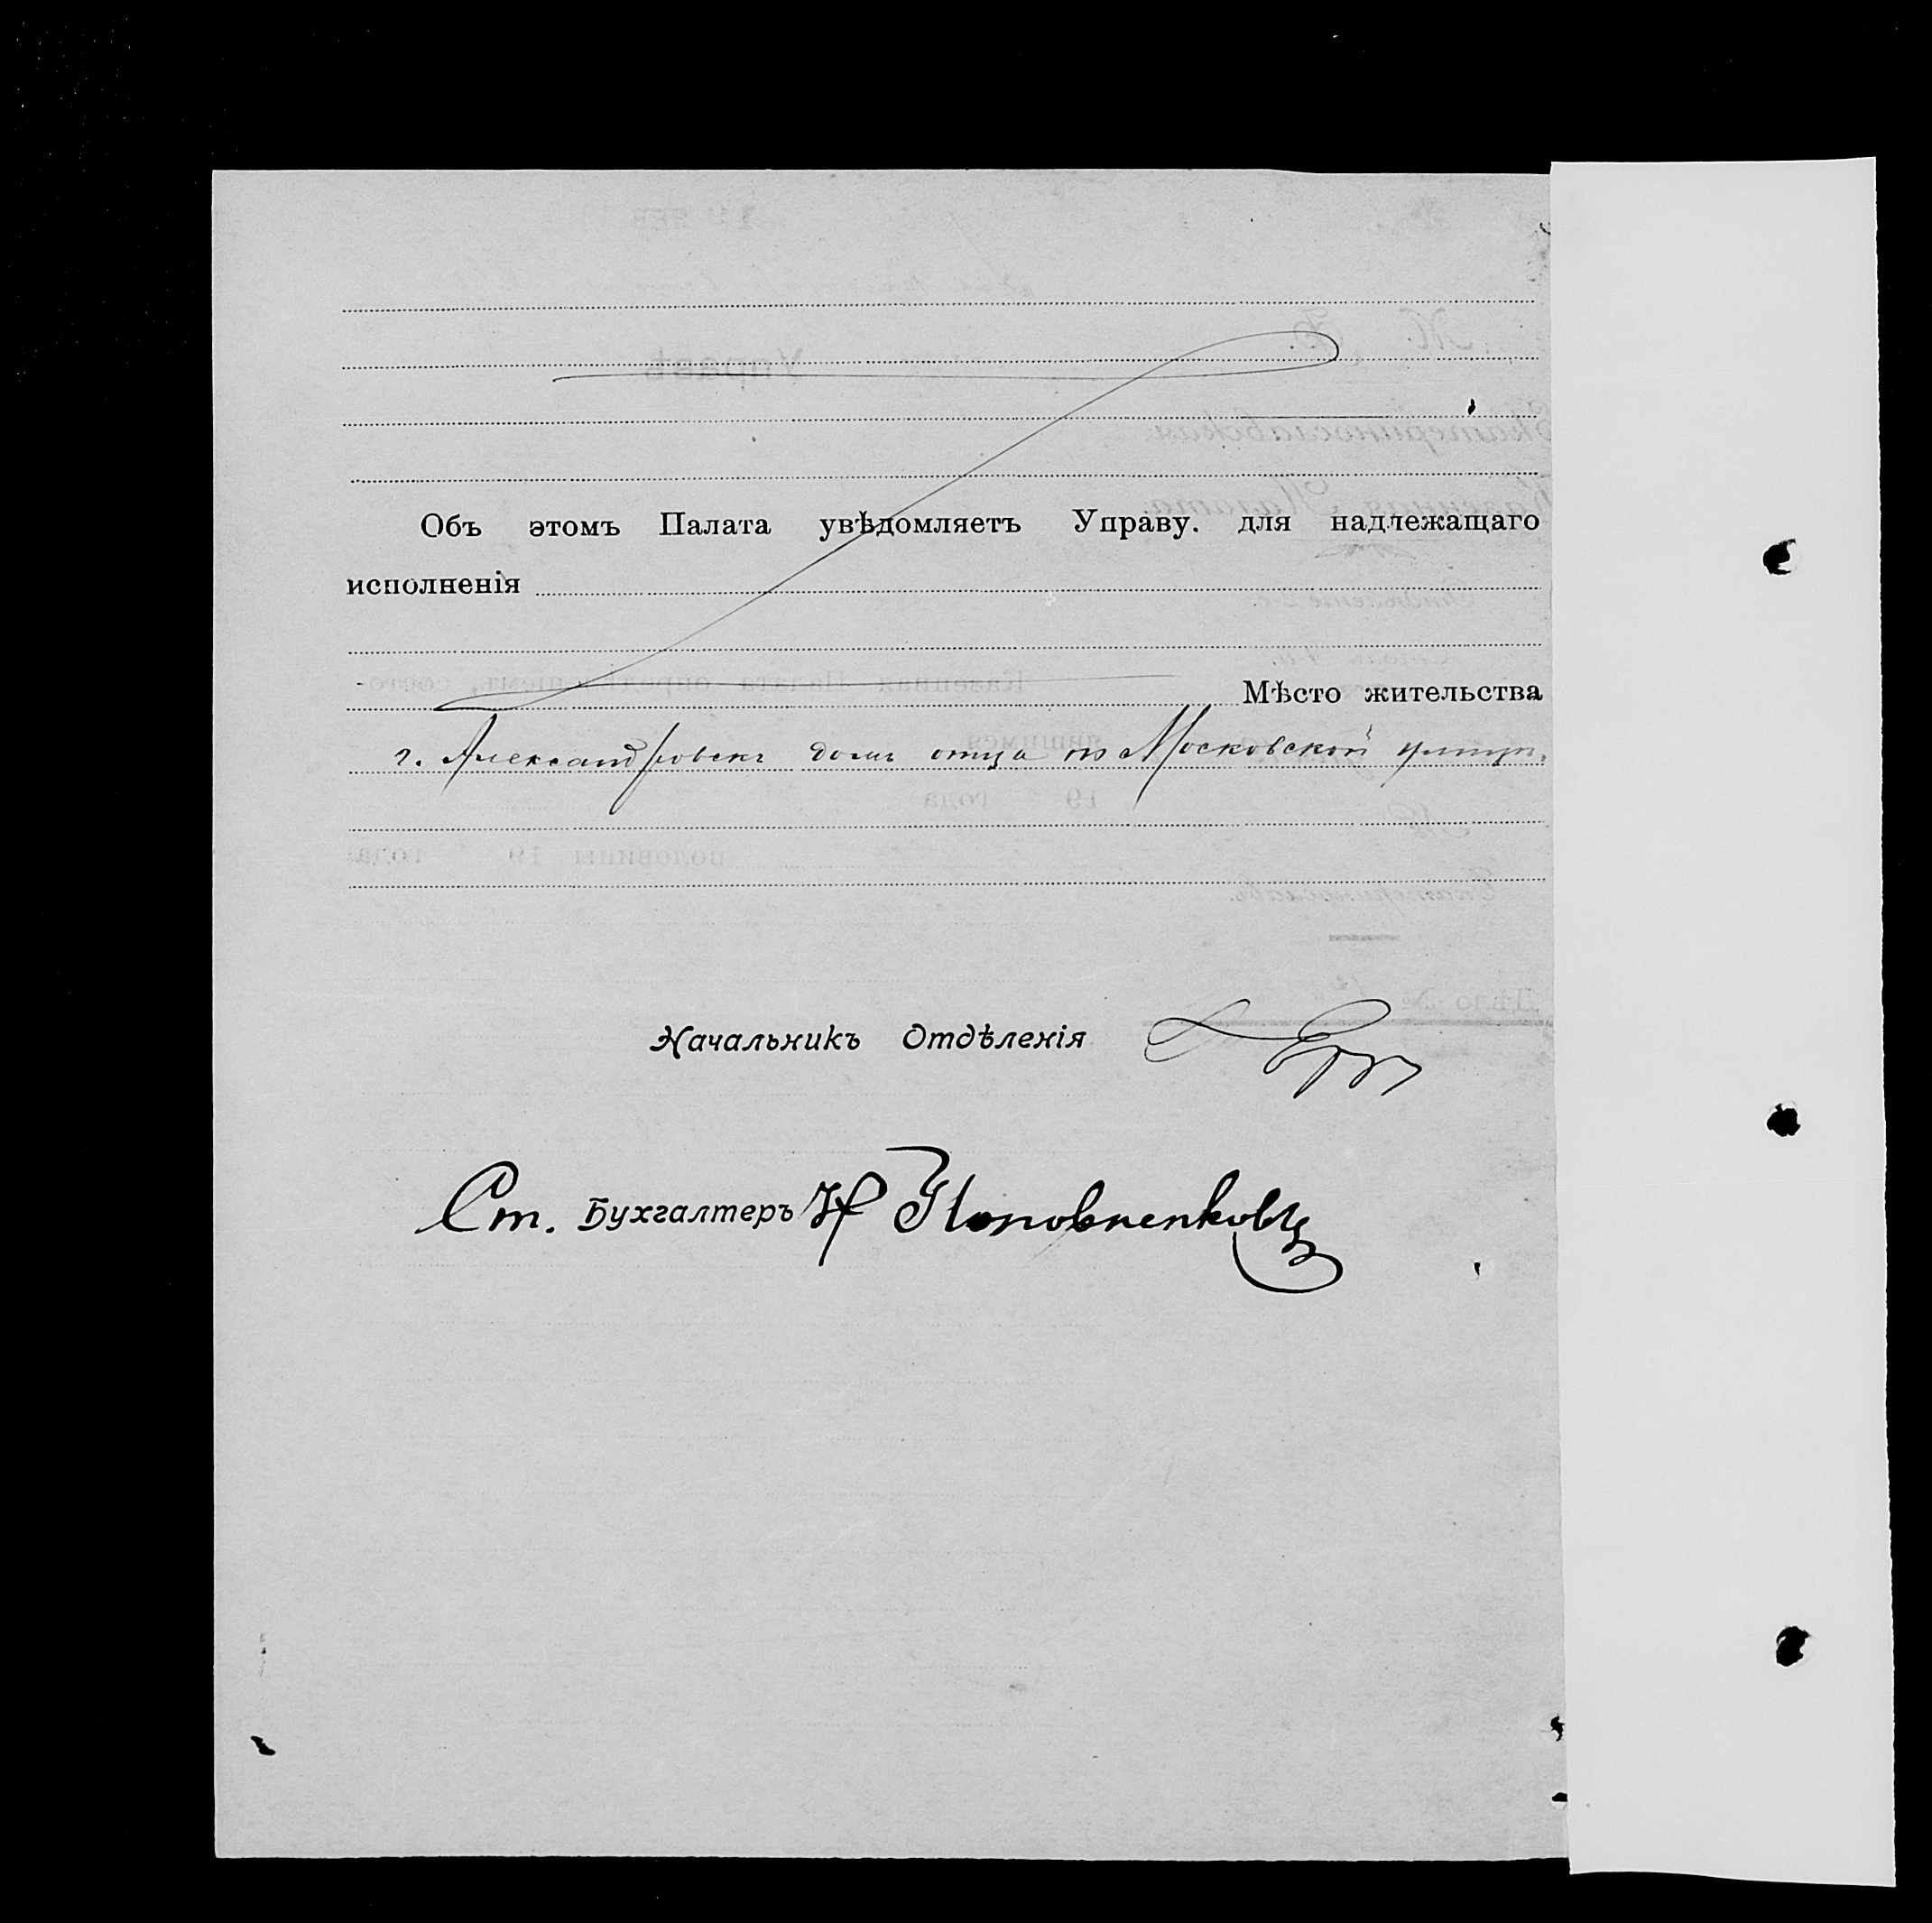 Объ этомъ Палата увѣдомляетъ Управу. для надлежащаго
исполненія
Мѣсто жительства
г. Александровскъ домъ отца по Московской улицѣ.
Начальникъ Отдѣленія
Ст. Бухгалтеръ